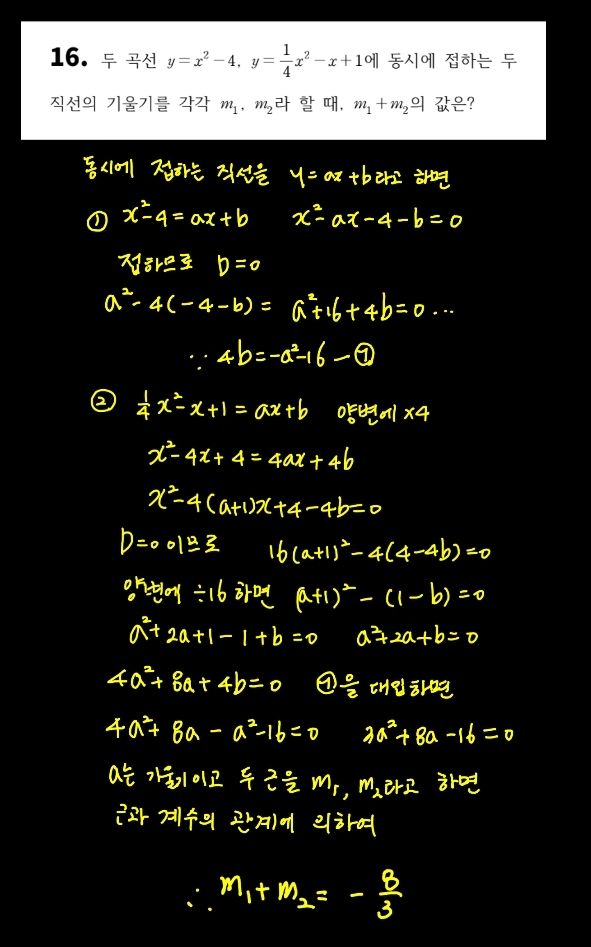 16. 두 곡선 y=x²-4, y=1/4x²-x+1에 동시에 접하는 두
직선의 기울기를 각각 m₁, m₂라 할 때, m₁+m₂의 값은?
동시에 접하는 직선을 y=ax+b라고 하면
① x²-4=ax+b x²-ax-4-b=0
접하므로 D=0
a²-4(-4-b)= a²+16+4b=0 ...
∵ 4b=-a²-16 -㉠
② 1/4x²-x+1=ax+b 양변에 ×4
x²-4x+4=4ax+4b
x²-4(a+1)x+4-4b=0
D=0 이므로 16(a+1)²-4(4-4b)=0
양변에 ÷16 하면 (a+1)²-(1-b)=0
a²+2a+1-1+b=0 a²+2a+b=0
4a²+8a+4b=0 ㉠을 대입하면
4a²+8a-a²-16=0 3a²+8a-16=0
a는 기울기이고 두 근을 m₁, m₂라고 하면
근과 계수의 관계에 의하여
∴ m₁+m₂= -8/3